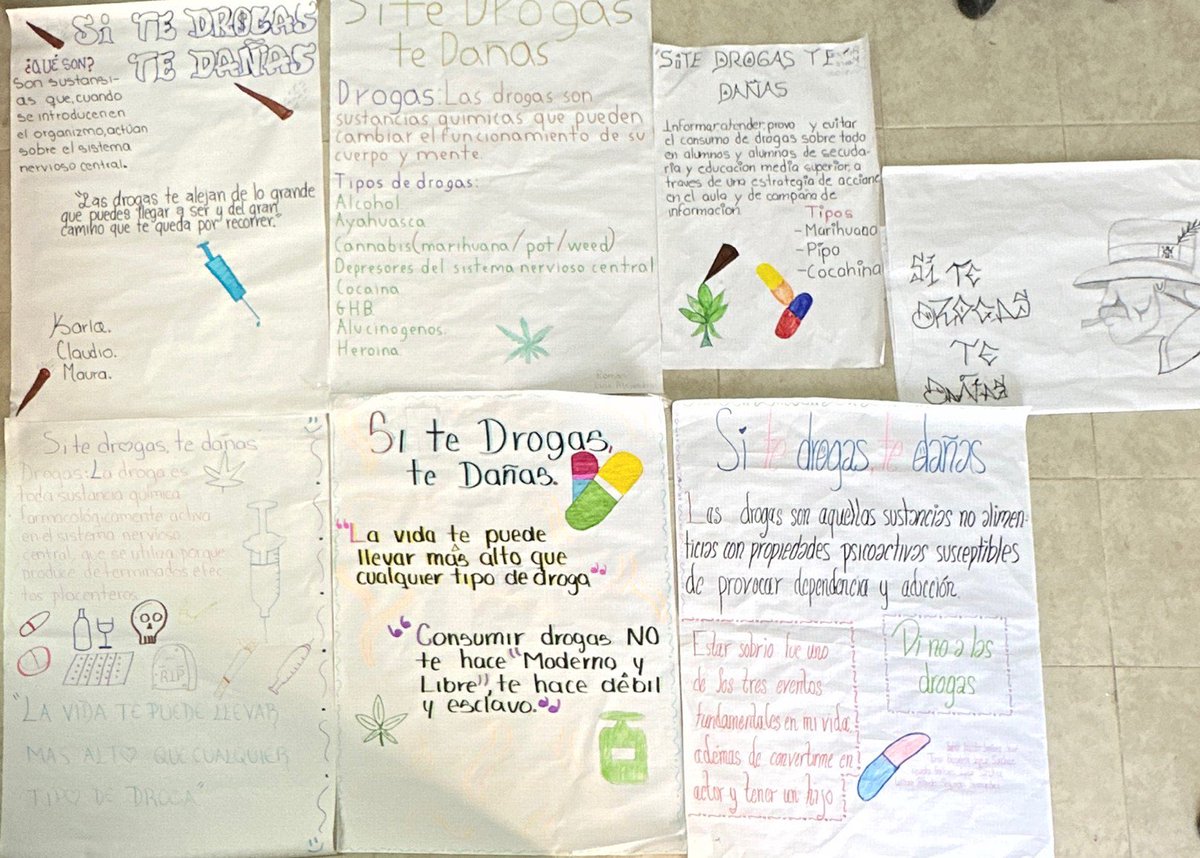 Si TE DROGAS
TE DAÑAS
¿QUÉ SON?
Son sustansi-
as que, cuando
se introducen en
el organizmo, actúan
sobre el sistema
nervioso central.
"Las drogas te alejan de lo grande
que puedes llegar a ser y del gran
camino que te queda por recorrer."
Karla.
Claudio.
Maura.
Si te Drogas
te Dañas
Drogas: Las drogas son
sustancias quimicas que pueden
cambiar el funcionamiento de su
cuerpo y mente.
Tipos de drogas:
Alcohol
Ayahuasca
Cannabis (marihuana/pot/weed)
Depresores del sistema nervioso central
Cocaina
GHB
Alucinogenos.
Heroina
"SiTE DROGAS TE
DAÑAS
Informar atender, provo y evitar
el consumo de drogas sobre todo
en alumnos y alumnas de secuda-
ria y educacion media superior, a
traves de una estrategia de accione
en el aula y de campaña de
informacion
Tipos
-Marihuano
-Pipo
-Cocahina
Si TE
DROGAS
TE
DAÑAS
Si te drogas, te dañas"
Drogas: La droga es
toda sustancia química
farmacológicamente activa
en el sistema nervioso
central, que se utiliza porque
produce determinados efec
tos placenteros.
R.I.P
"LA VIDA TE PUEDE LLEVAR
MAS ALTO QUE CUALQUIER
TIPO DE DROGA"
Si te Drogas,
te Dañas.
"La vida te puede
llevar más alto que
cualquier tipo de droga"
"Consumir drogas NO
te hace "Moderno y
Libre", te hace débil
y esclavo."
Si te drogas, te dañas
Las drogas son aquellas sustancias no alimen-
ticias con propiedades psicoactivas susceptibles
de provocar dependencia y adicción.
Estar sobrio fue uno
de los tres eventos
fundamentales en mi vida,
además de convertirme en
actor y tener un hijo
Di no a las
drogas